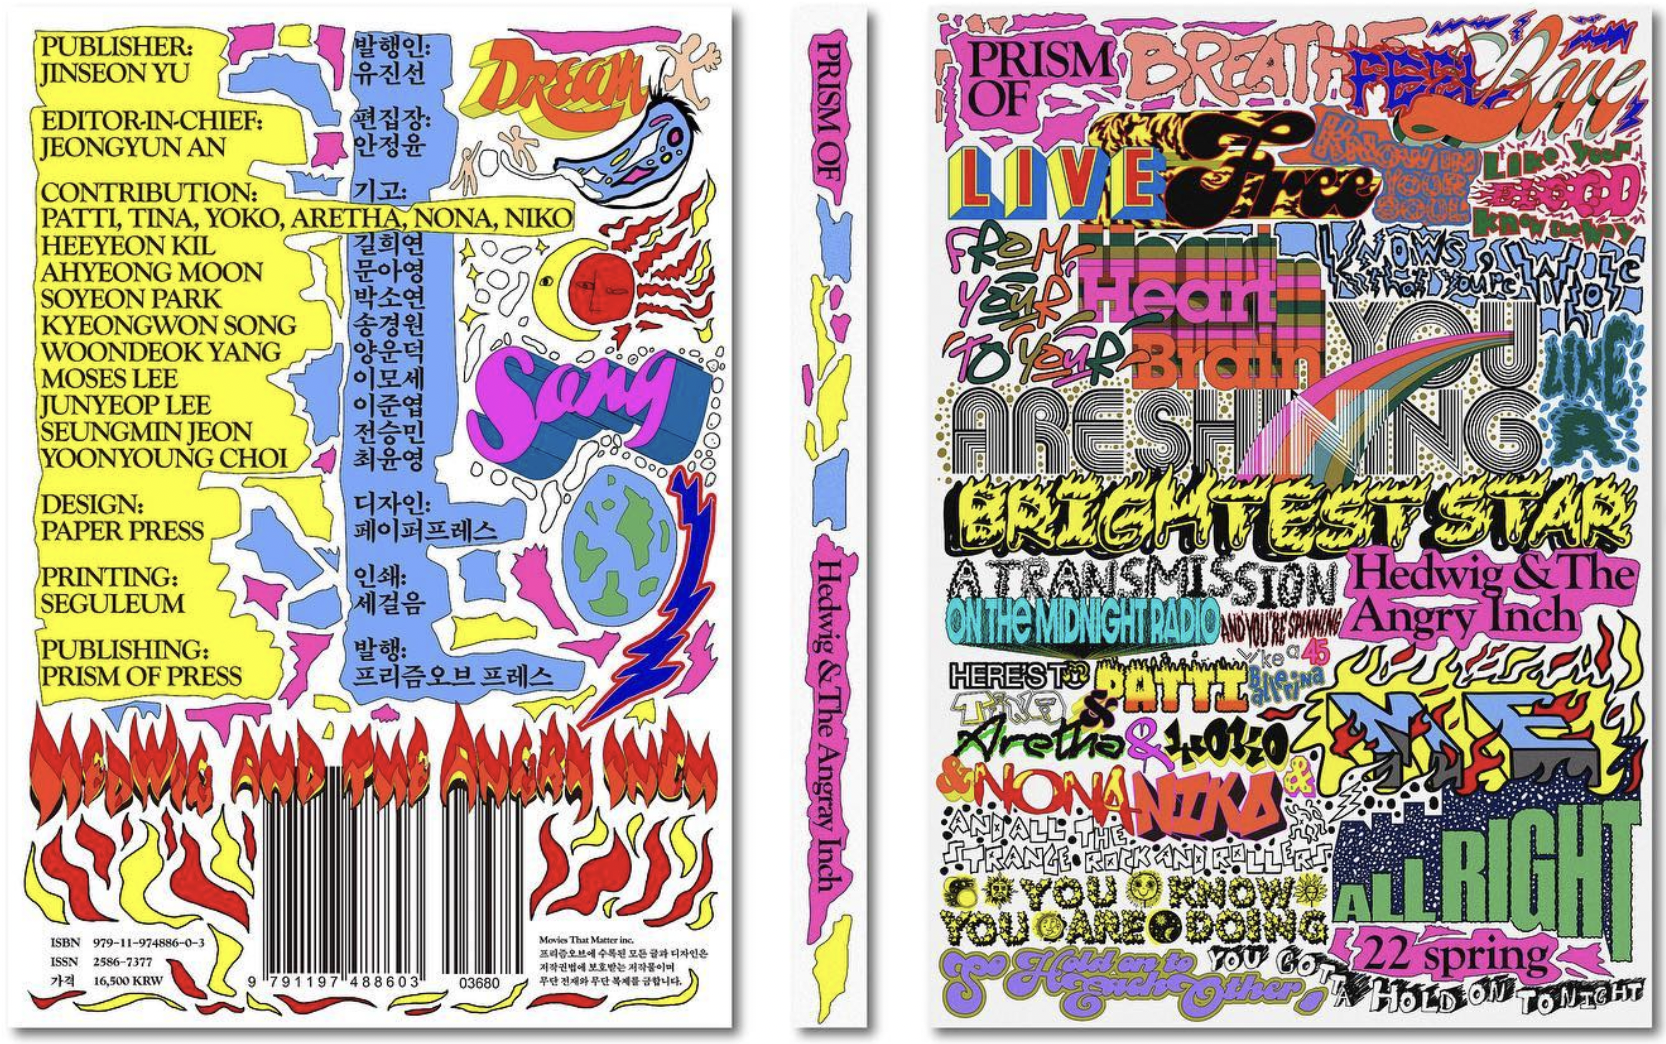 PUBLISHER:
JINSEON YU
EDITOR-IN-CHIEF:
JEONGYUN AN
CONTRIBUTION:
PATTI, TINA, YOKO, ARETHA, NONA, NIKO
HEEYEON KIL
AHYEONG MOON
SOYEON PARK
KYEONGWON SONG
WOONDEOK YANG
MOSES LEE
JUNYEOP LEE
SEUNGMIN JEON
YOONYOUNG CHOI
DESIGN:
PAPER PRESS
PRINTING:
SEGULEUM
PUBLISHING:
PRISM OF PRESS
발행인:
유진선
편집장:
안정윤
기고:
길희연
문아영
박소연
송경원
양운덕
이모세
이준엽
전승민
최윤영
디자인:
페이퍼프레스
인쇄:
세걸음
발행:
프리즘오브 프레스
DREAM
Song
HEDWIG AND THE ANGRY INCH
ISBN 979-11-974886-0-3
ISSN 2586-7377
가격 16,500 KRW
9 791197 488603
03680
Movies That Matter inc.
프리즘오브에 수록된 모든 글과 디자인은
저작권법에 보호받는 저작물이며
무단 전재와 무단 복제를 금합니다.
PRISM OF
Hedwig & The Angray Inch
PRISM
OF
BREATHE
FEEL
Love
LIVE
Free
KNOW IN
YOUR
SOUL
Like Your
BLOOD
KNOW the WAY
FROM
YOUR
Heart
TO YOUR
Brain
KNOWS,
that you're
YOU
ARE SHINING
LIKE
A
BRIGHTEST STAR
A TRANSMISSION
ON THE MIDNIGHT RADIO
AND YOU'RE SPINNING
Like a 45
Ballerina
Hedwig & The
Angry Inch
HERE'S TO
PATTI
TINA
&
Aretha
& YOKO
& NONA
NIKO
&
ME
AND ALL THE
STRANGE ROCK AND ROLLERS
YOU KNOW
YOU ARE DOING
ALL RIGHT
22 spring
So Hold on to
Each Other
YOU GOT
TA HOLD ON TONIGHT